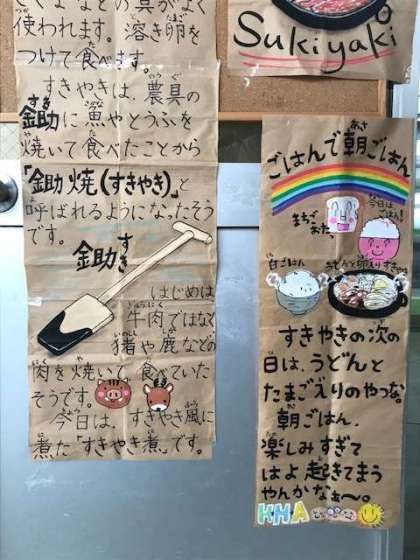 使われます。溶き卵を
つけて食べます。
すきやきは、農具の
鋤に魚やとうふを
焼いて食べたことから
「鋤焼(すきやき)」と
呼ばれるようになったそう
です。
鋤
すき
はじめは
牛肉ではなく
猪や鹿などの
肉を焼いて、食べていた
そうです。
今日は、すきやき風に
煮た「すきやき煮」です。
Sukiyaki
ごはんで朝ごはん
まちで
おた
今日は
ごはん!
白ごはん
すきやきの次の
日は、うどんと
たまご入りのやつな。
朝ごはん、
楽しみすぎて
はよ起きてまう
やんかなぁ〜。